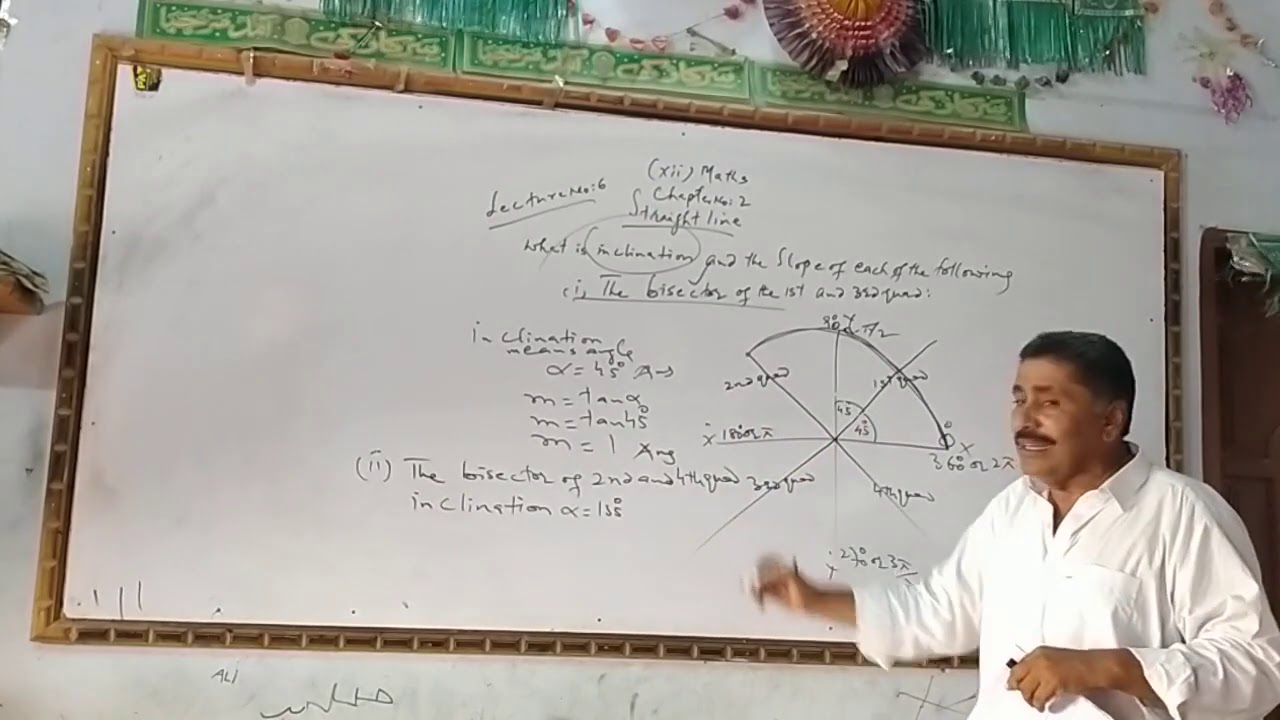 (xii) Maths
Lecture No: 6
Chapter No: 2
Straight line
What is inclination and the slope of each of the following
(i) The bisector of the 1st and 3rd quad:
inclination
means angle
α = 45° Ans
m = tanα
m = tan45°
m = 1 Ans
(ii) The bisector of 2nd and 4th quad
inclination α = 135°
90° or π/2
y
2nd quad
1st quad
45
45°
0°
x́ 180 or π
x
360° or 2π
3rd quad
4th quad
ý
270° or 3π
ALI